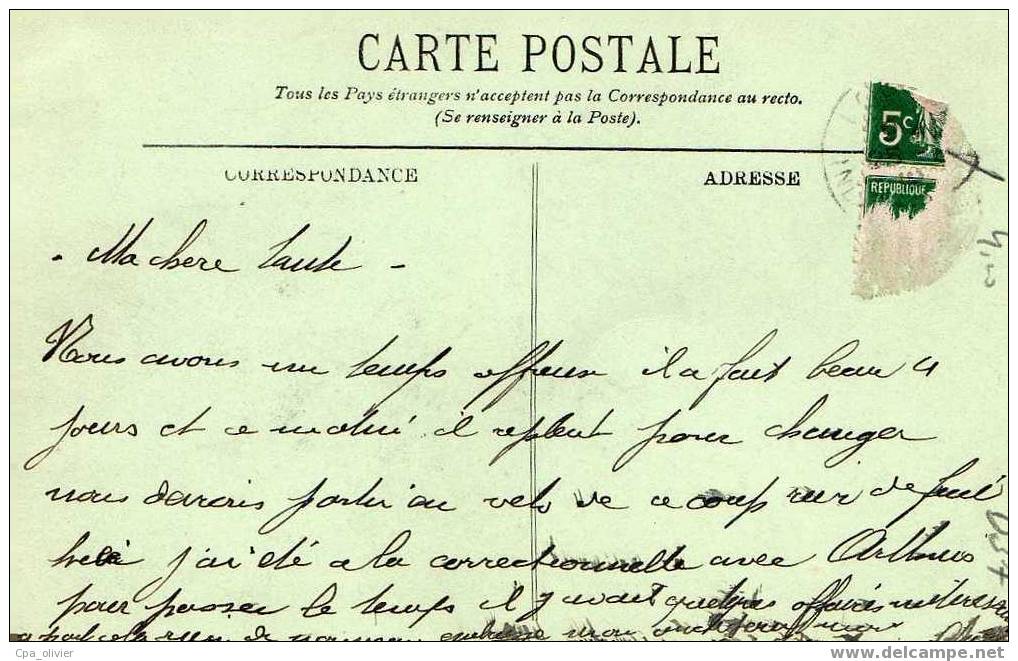 CARTE POSTALE
Tous les Pays étrangers n'acceptent pas la Correspondance au recto.
(Se renseigner à la Poste).
5c
REPUBLIQUE
CORRESPONDANCE
ADRESSE
4,00
- Ma chere tante -
Nous avons un temps affreux il a fait beau 4
jours et ce matin il repleut pour changer
nous devons partir en velo de ce coup rien de fait
hier j'ai été a la correctionnelle avec
pour passer le temps il y avait quelques affaires
a part cela rien de nouveau
037
Cpa_olivier
delcampe.net